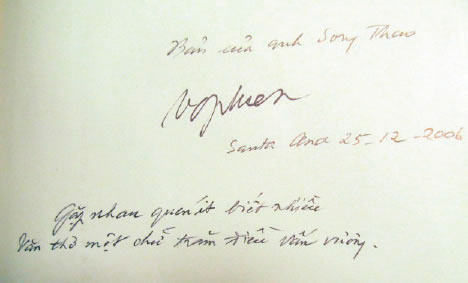 Bản của anh Song Thao
Võphiến
Santa Ana 25-12-2006
Gặp nhau quen ít biết nhiều
Văn thơ một chữ trăm điều vấn vương.